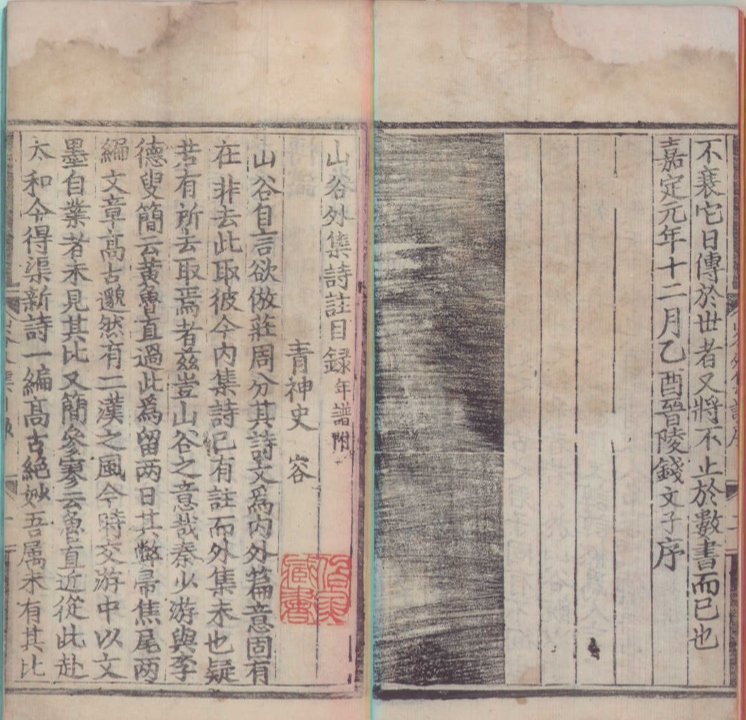 不衰它日傳於世者又將不止於數書而已也
嘉定元年十二月乙酉晉陵錢文子序
山谷外集詩註目録年譜附
青神史 容
山谷自言欲倣莊周分其詩文爲内外篇意固有
在非去此取彼今内集詩已有註而外集未也疑
若有所去取焉者兹豈山谷之意哉秦少游與李
德叟簡云黄魯直過此爲留兩日其弊帚焦尾兩
編文章髙古邈然有二漢之風今時交游中以文
墨自業者未見其比又簡參寥云魯直近從此赴
太和令得渠新詩一編髙古絶妙吾属未有其比